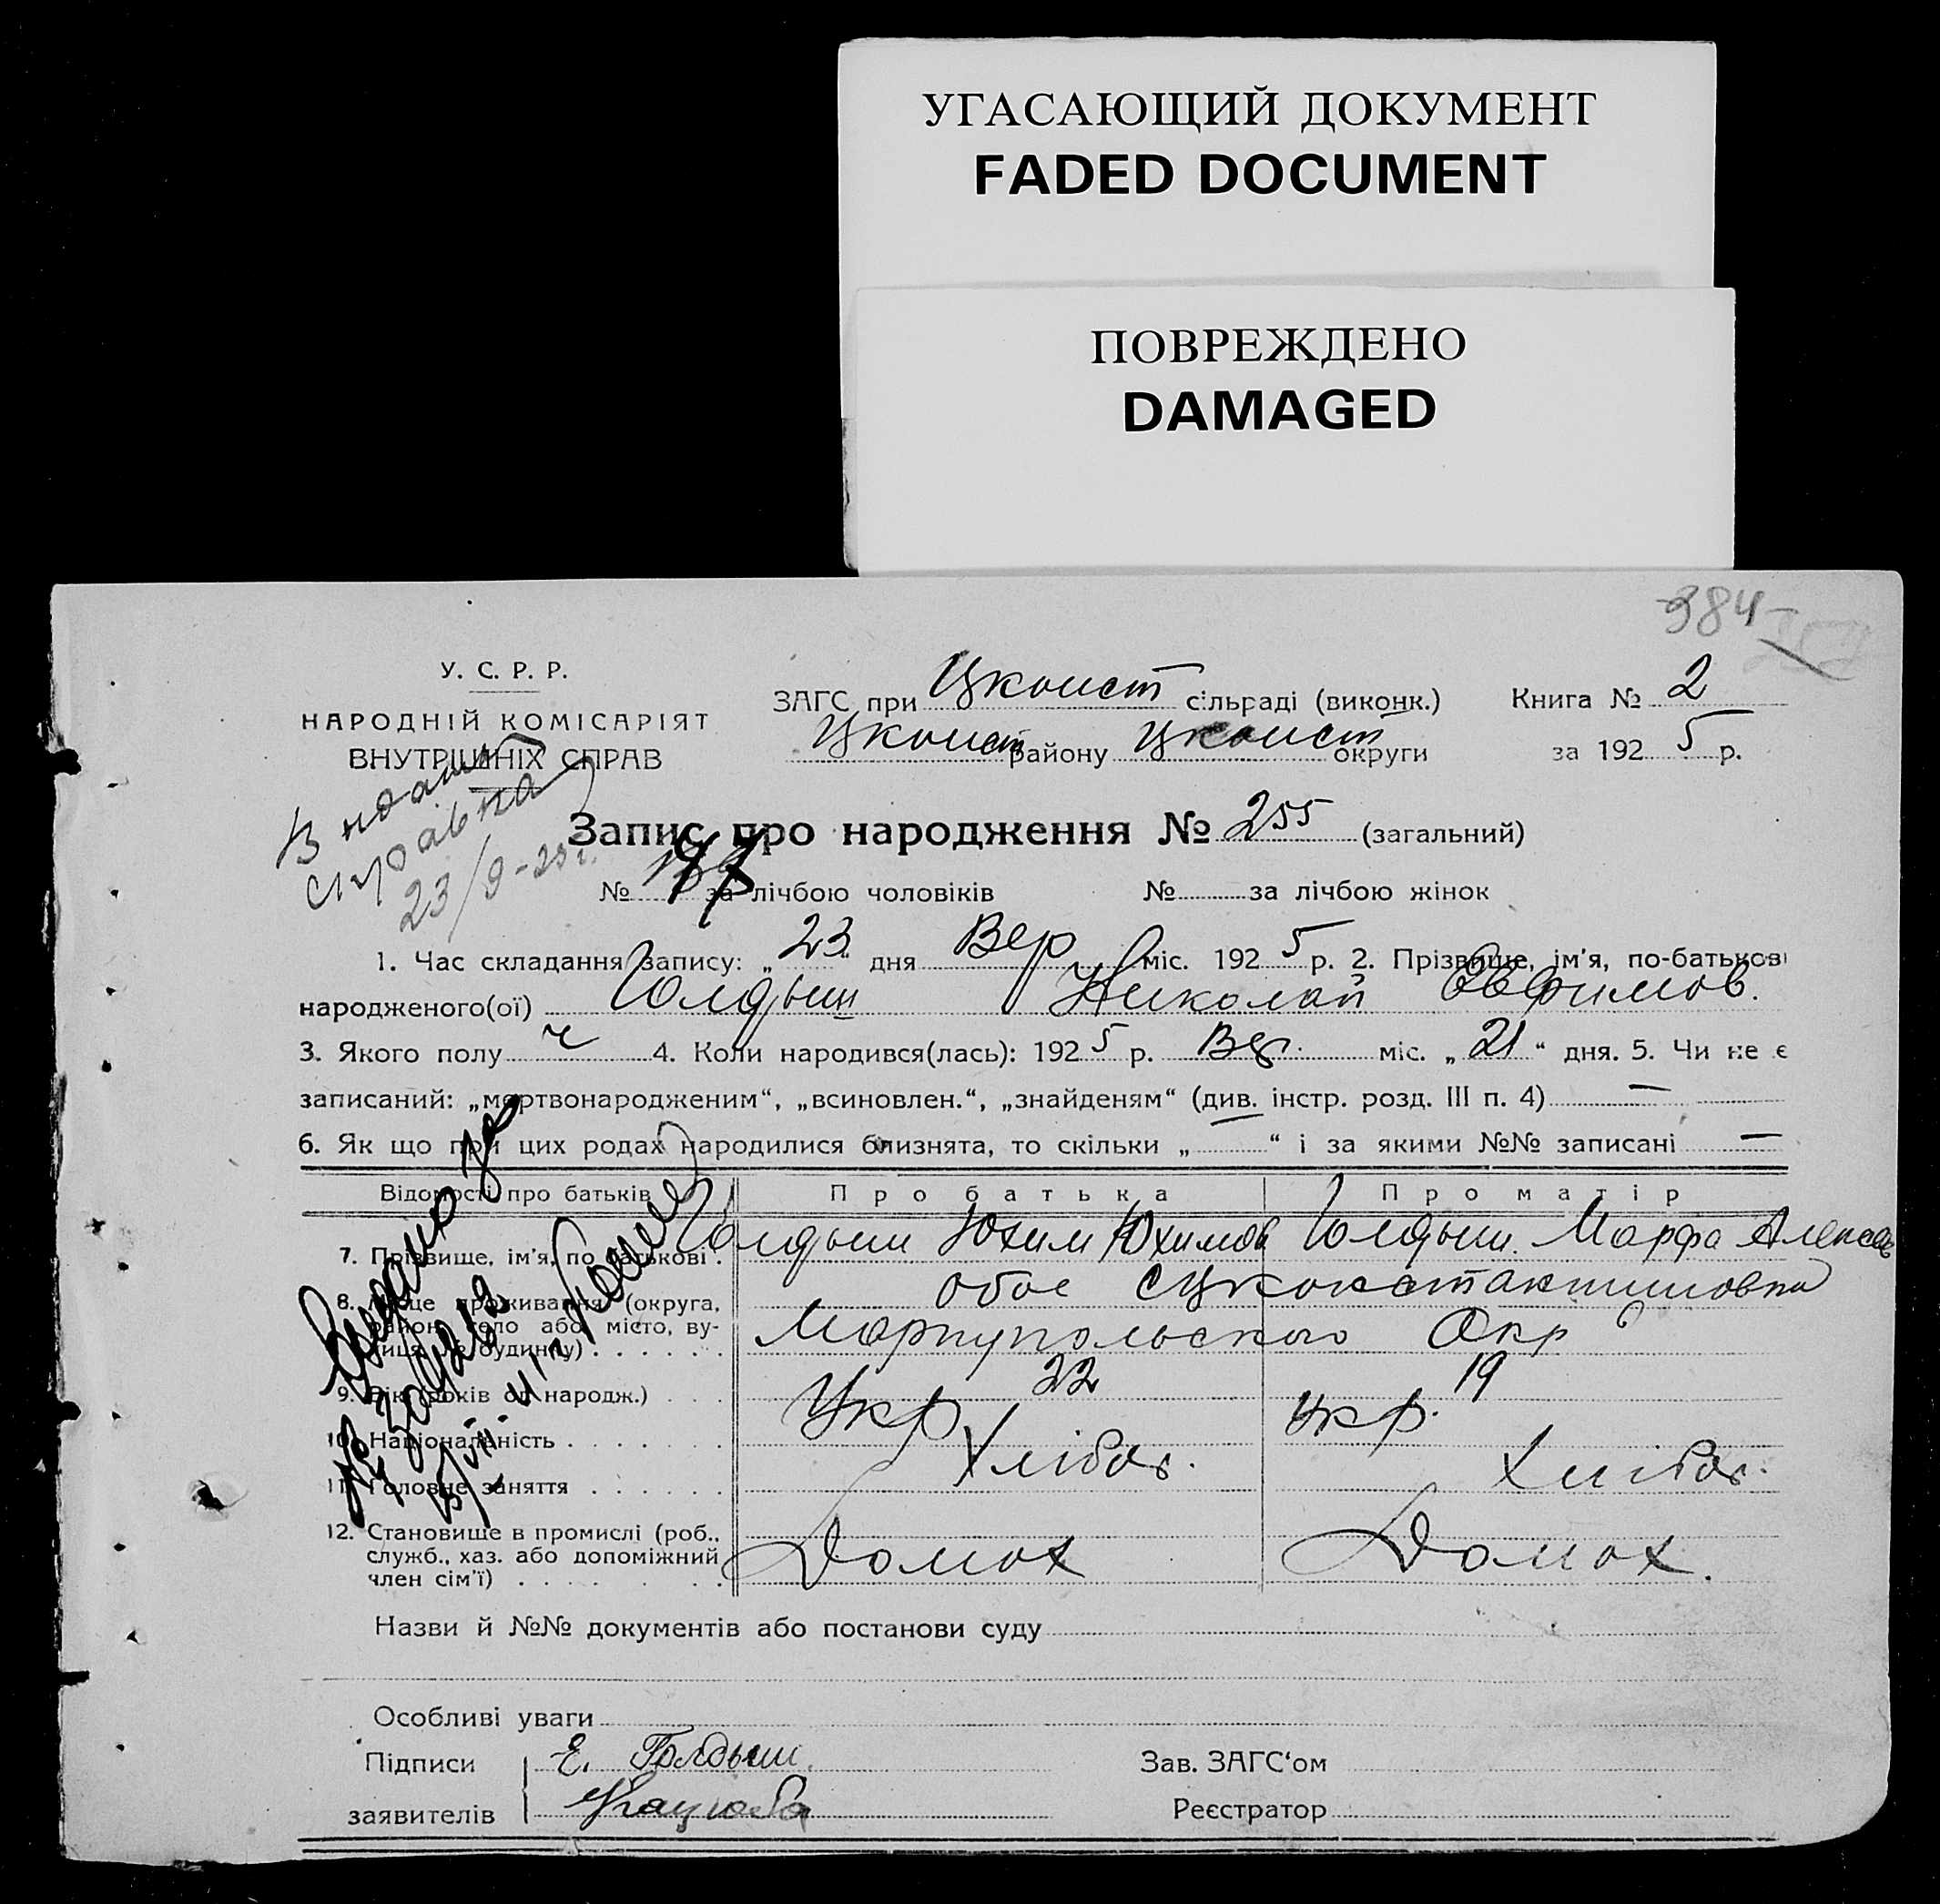 УГАСАЮЩИЙ ДОКУМЕНТ
FADED DOCUMENT
ПОВРЕЖДЕНО
DAMAGED
384
У. С. Р. Р.
НАРОДНІЙ КОМІСАРІЯТ
ВНУТРІШНІХ СПРАВ
ЗАГС при Цконст сільраді (виконк.) Книга № 2
Цконст району Цконст округи за 192 5 р.
справка
23/9-25 г.
Запис про народження № 255 (загальний)
№ за лічбою чоловіків № за лічбою жінок
1. Час складання запису: „ 23 " дня Вер міс. 192 5 р. 2. Прізвище, ім'я, по-батькові
народженого(ої) Голдыш Николай Евфимов.
3. Якого полу ч 4. Коли народився(лась): 192 5 р. Вер. міс. „ 21 " дня. 5. Чи не є
записаний: „мертвонародженим", „всиновлен.", „знайденям" (див. інстр. розд. III п. 4) —
6. Як що при цих родах народилися близнята, то скільки „ — " і за якими №№ записані —
Відомості про батьків Про батька Про матір
7. Прізвище, ім'я, по батькові . Голдыш Юхим Юхимов Голдыш. Марфа Алексав
8. Місце проживання (округа, район, село або місто, вулиця, № будинку) . . . . . . обое с Цконстантиновки
Марпупольського Окр
9. Вік (років од народж.) . . . 22 19
10. Національність . . . . . . . Укр Укр.
11. Головне заняття . . . . . . Хлібор. Хлібор.
12. Становище в промислі (роб., служб., хаз. або допоміжний член сім'ї) . . . . . . Домох Домох.
Видано за
Назви й №№ документів або постанови суду
Особливі уваги
Підписи Е. Голдыш. Зав. ЗАГС'ом
заявителів Реєстратор